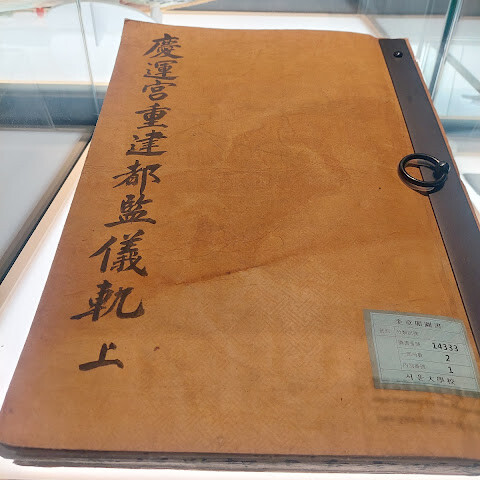 慶運宮重建都監儀軌 上
奎章閣圖書
14333
2
1
서울大學校